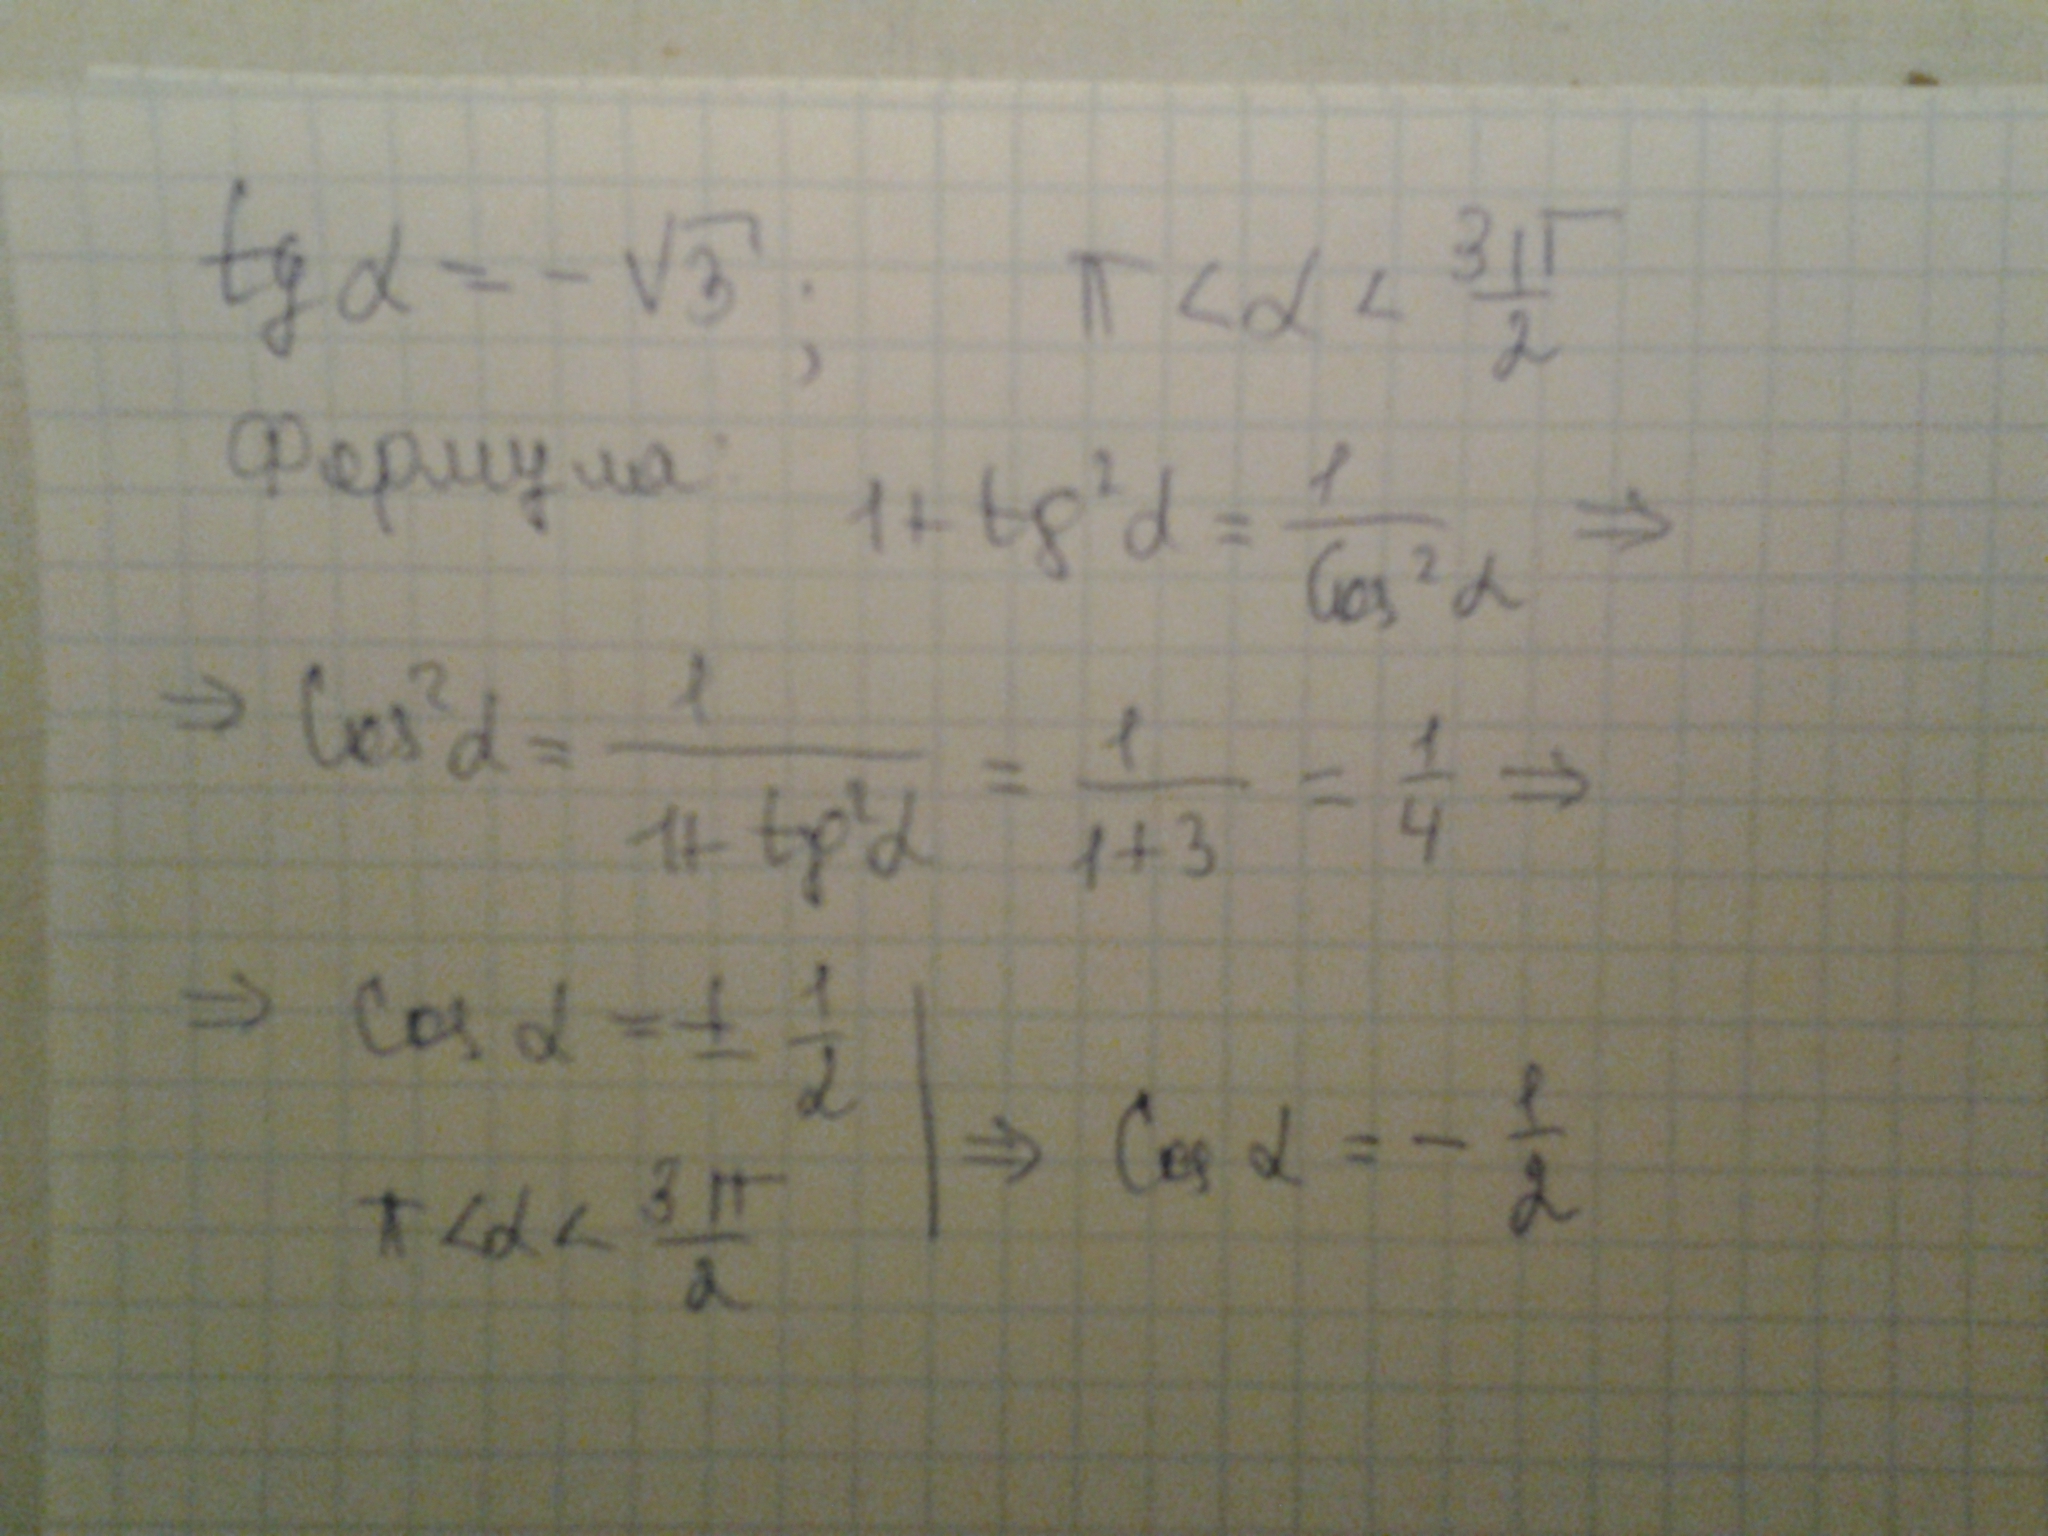 tg α = - √3 ; π < α < 3π/2
Формула: 1 + tg²α = 1/Cos²α ⇒
⇒ Cos²α = 1/(1 + tg²α) = 1/(1+3) = 1/4 ⇒
⇒ Cos α = ± 1/2
π < α < 3π/2 | ⇒ Cos α = - 1/2